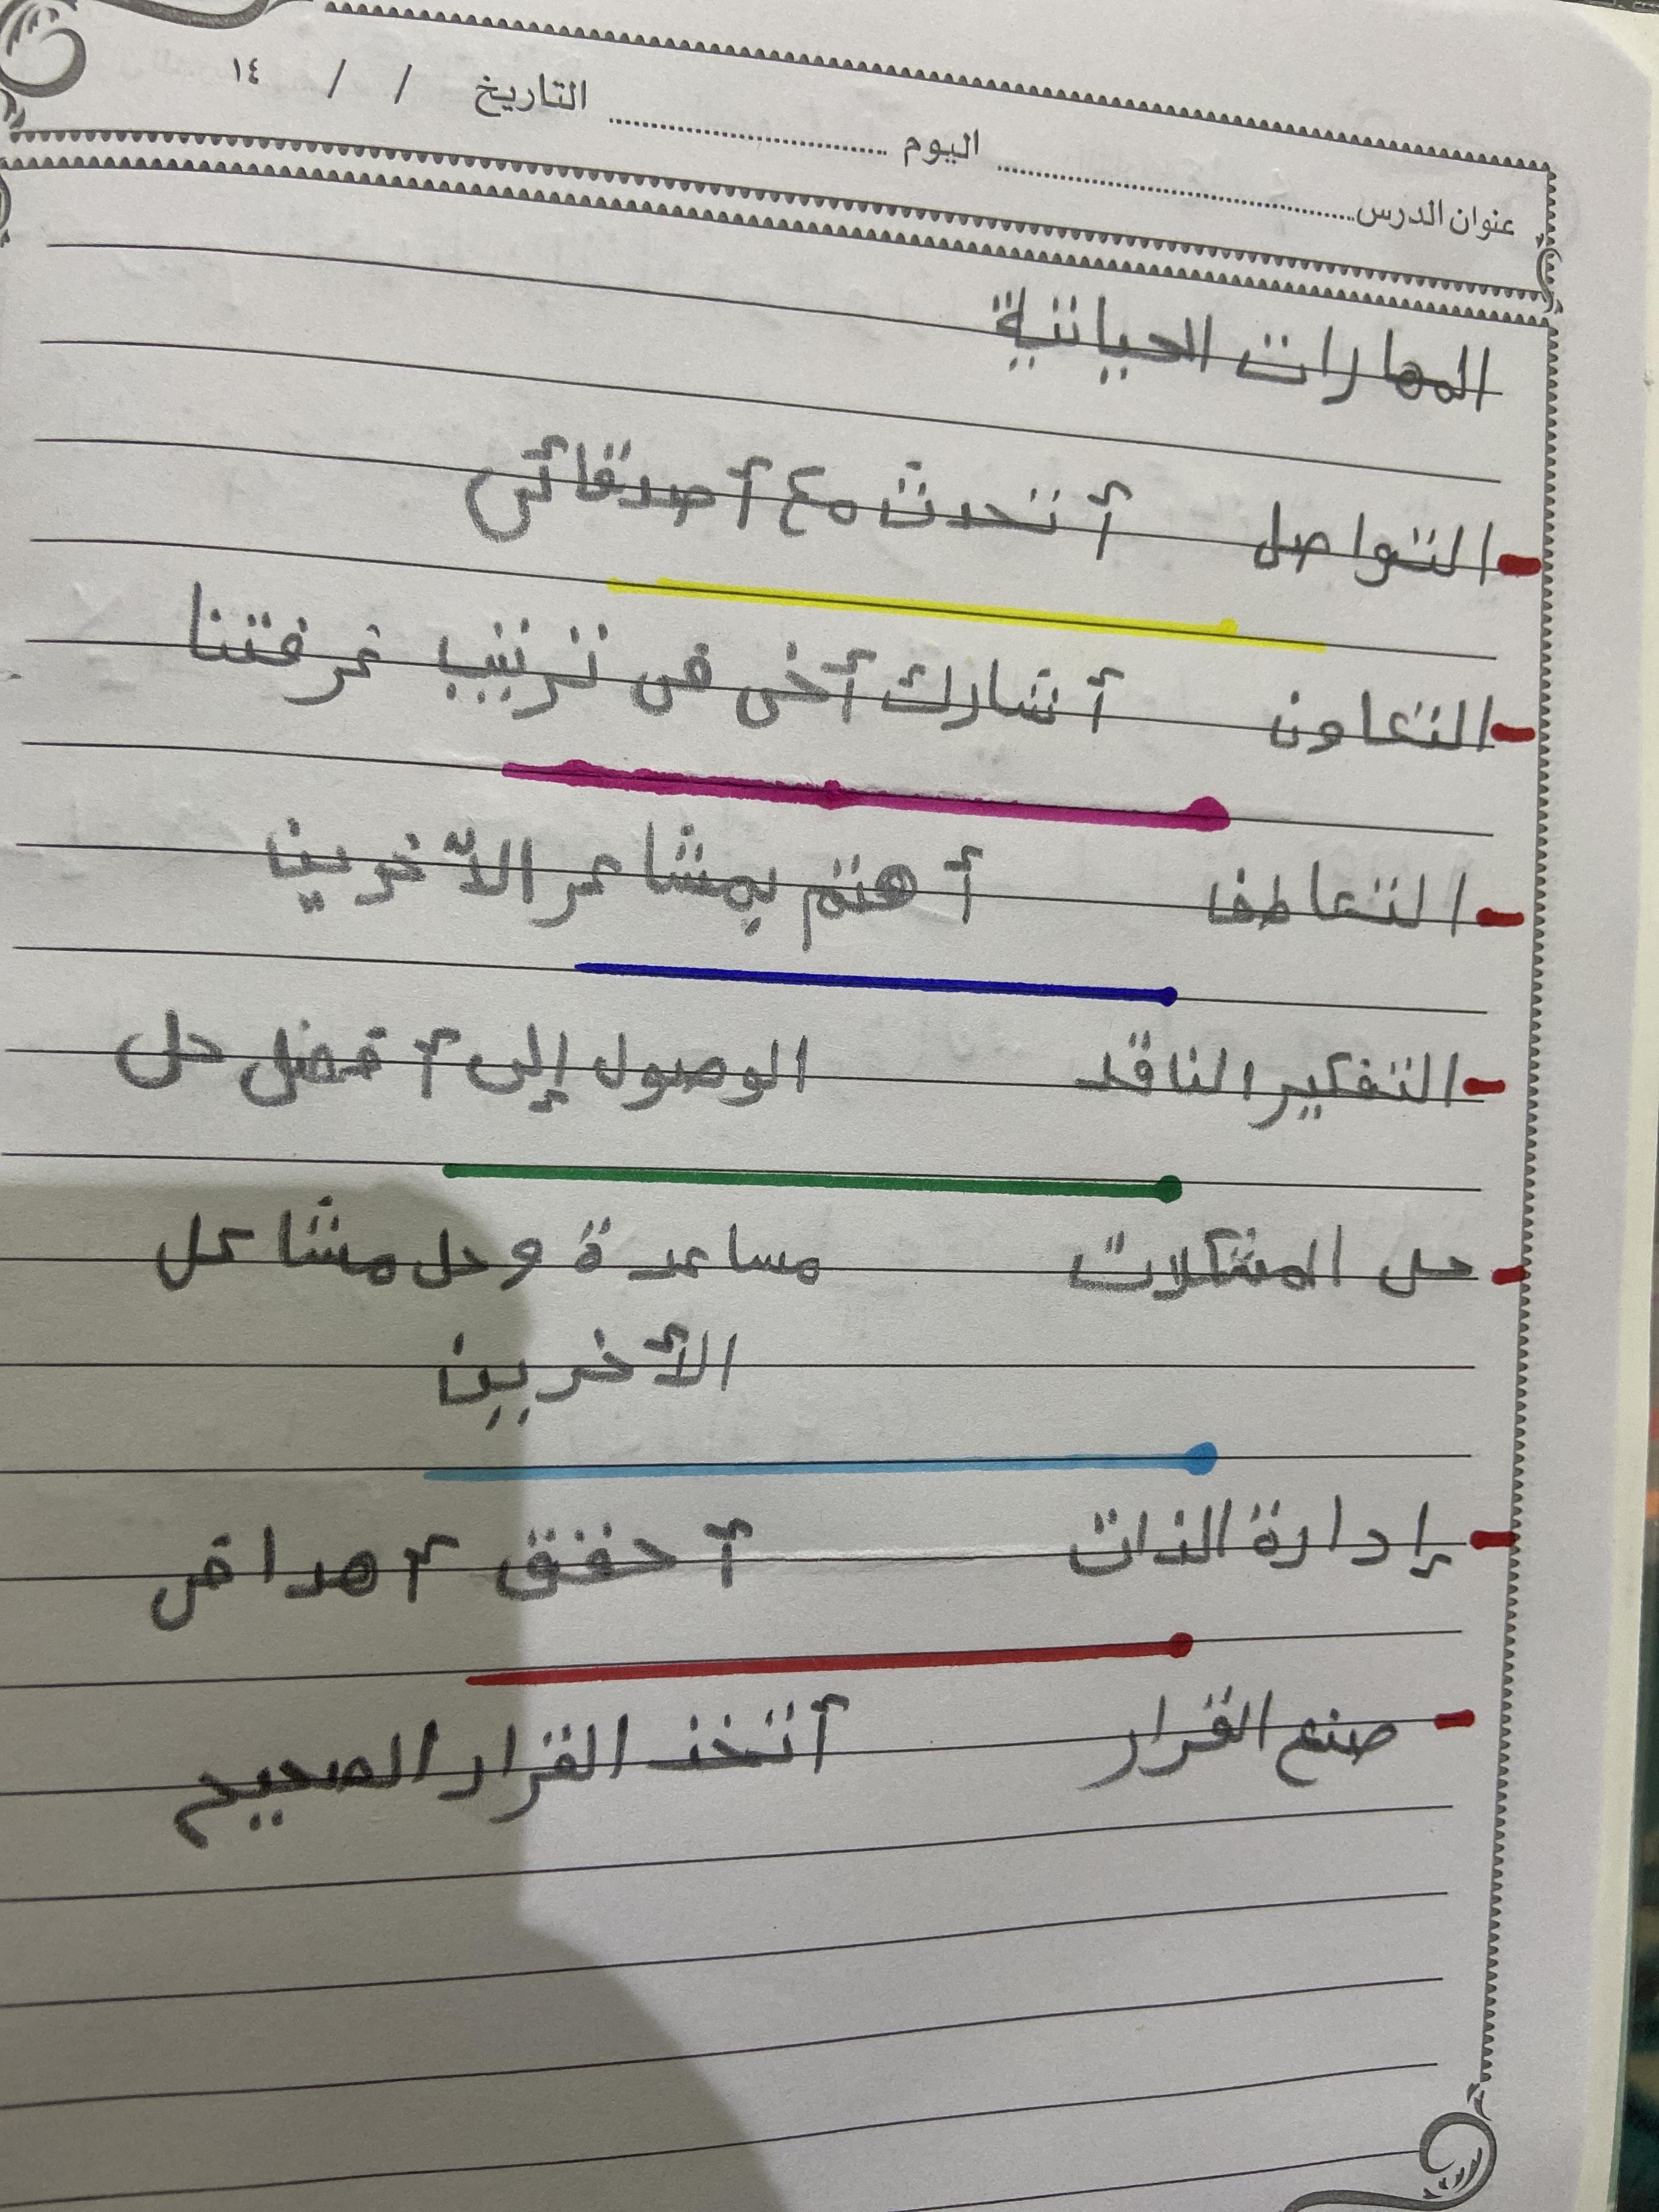 عنوان الدرس اليوم التاريخ / / ١٤
المهارات الحياتية
- التواصل أتحدث مع أصدقائي
- التعاون أشارك أخي في ترتيب غرفتنا
- التعاطف أهتم بمشاعر الآخرين
- التفكير الناقد الوصول إلى أفضل حل
- حل المشكلات مساعدة وحل مشاكل
الآخرين
- إدارة الذات أحقق أهدافي
- صنع القرار أتخذ القرار الصحيح